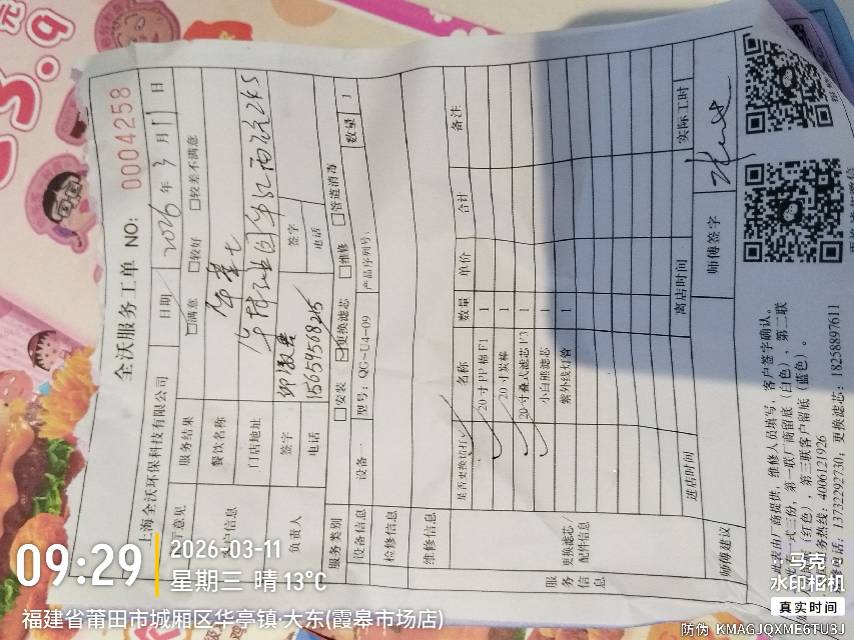 全沃服务工单 NO: 0004258
上海全沃环保科技有限公司 日期 2026 年 3 月 11 日
服务结果 ☑满意 □较好 □较差不满意
餐饮名称 华莱士
门店地址
负责人 签字 签字
电话 电话
服务类别 □安装 ☑更换滤芯 □维修 □管道消毒
设备信息 设备一 型号: QG-U4-09 产品序列号: 数量 1
检修信息
维修信息
服务信息
更换滤芯/配件信息
是否更换请打√ 名称 数量 单价 合计 备注
√ 20寸PP棉F1 1
√ 20寸炭棒 1
√ 20寸叠式滤芯F3 1
小白熊滤芯 1
紫外线灯管 1
进店时间 离店时间 实际工时
师傅建议 师傅签字
此表由厂商提供, 维修人员填写, 客户签字确认。
一式三份, 第一联厂商留底 (白色)、第二联
(红色)、第三联客户留底 (蓝色)。
服务热线: 4006121926
电话: 13732292730; 更换滤芯: 18258897611
09:29
2026-03-11
星期三 晴 13℃
福建省莆田市城厢区华亭镇·大东(霞皋市场店)
马克
水印相机
真实时间
防伪 KMAGJQXME6TU3J